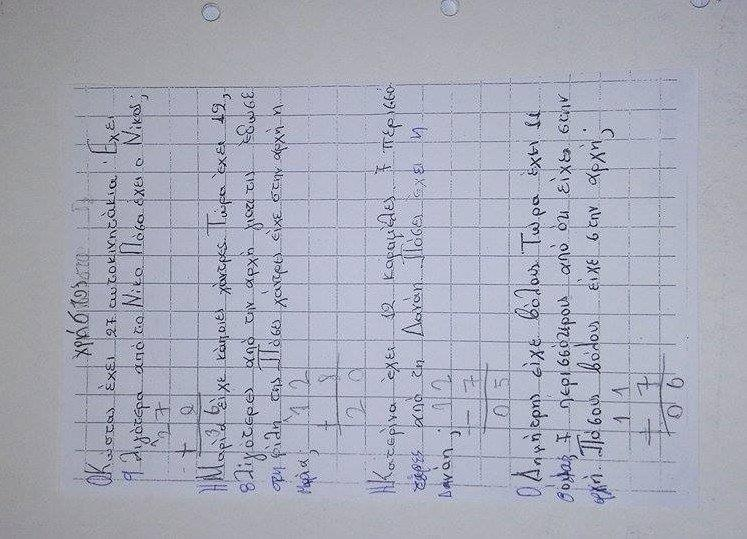 χρήστος
Ο Κώστας έχει 27 αυτοκινητάκια. Έχει
9 λιγότερα από το Νίκο. Πόσα έχει ο Νίκος;
27
+ 9
36
Η Μαρία είχε κάποιες χάντρες. Τώρα έχει 12,
8 λιγότερες από την αρχή γιατί τις έδωσε
στη φίλη της. Πόσες χάντρες είχε στην αρχή η
Μαρία;
12
+ 8
20
Η Κατερίνα έχει 12 καραμέλες 7 περισσό-
τερες από τη Δανάη. Πόσες έχει η
Δανάη;
12
- 7
05
Ο Δημήτρης είχε βόλους. Τώρα έχει 11
βόλους 7 περισσότερους από ότι είχε στην
αρχή. Πόσους βόλους είχε στην αρχή;
11
- 7
06